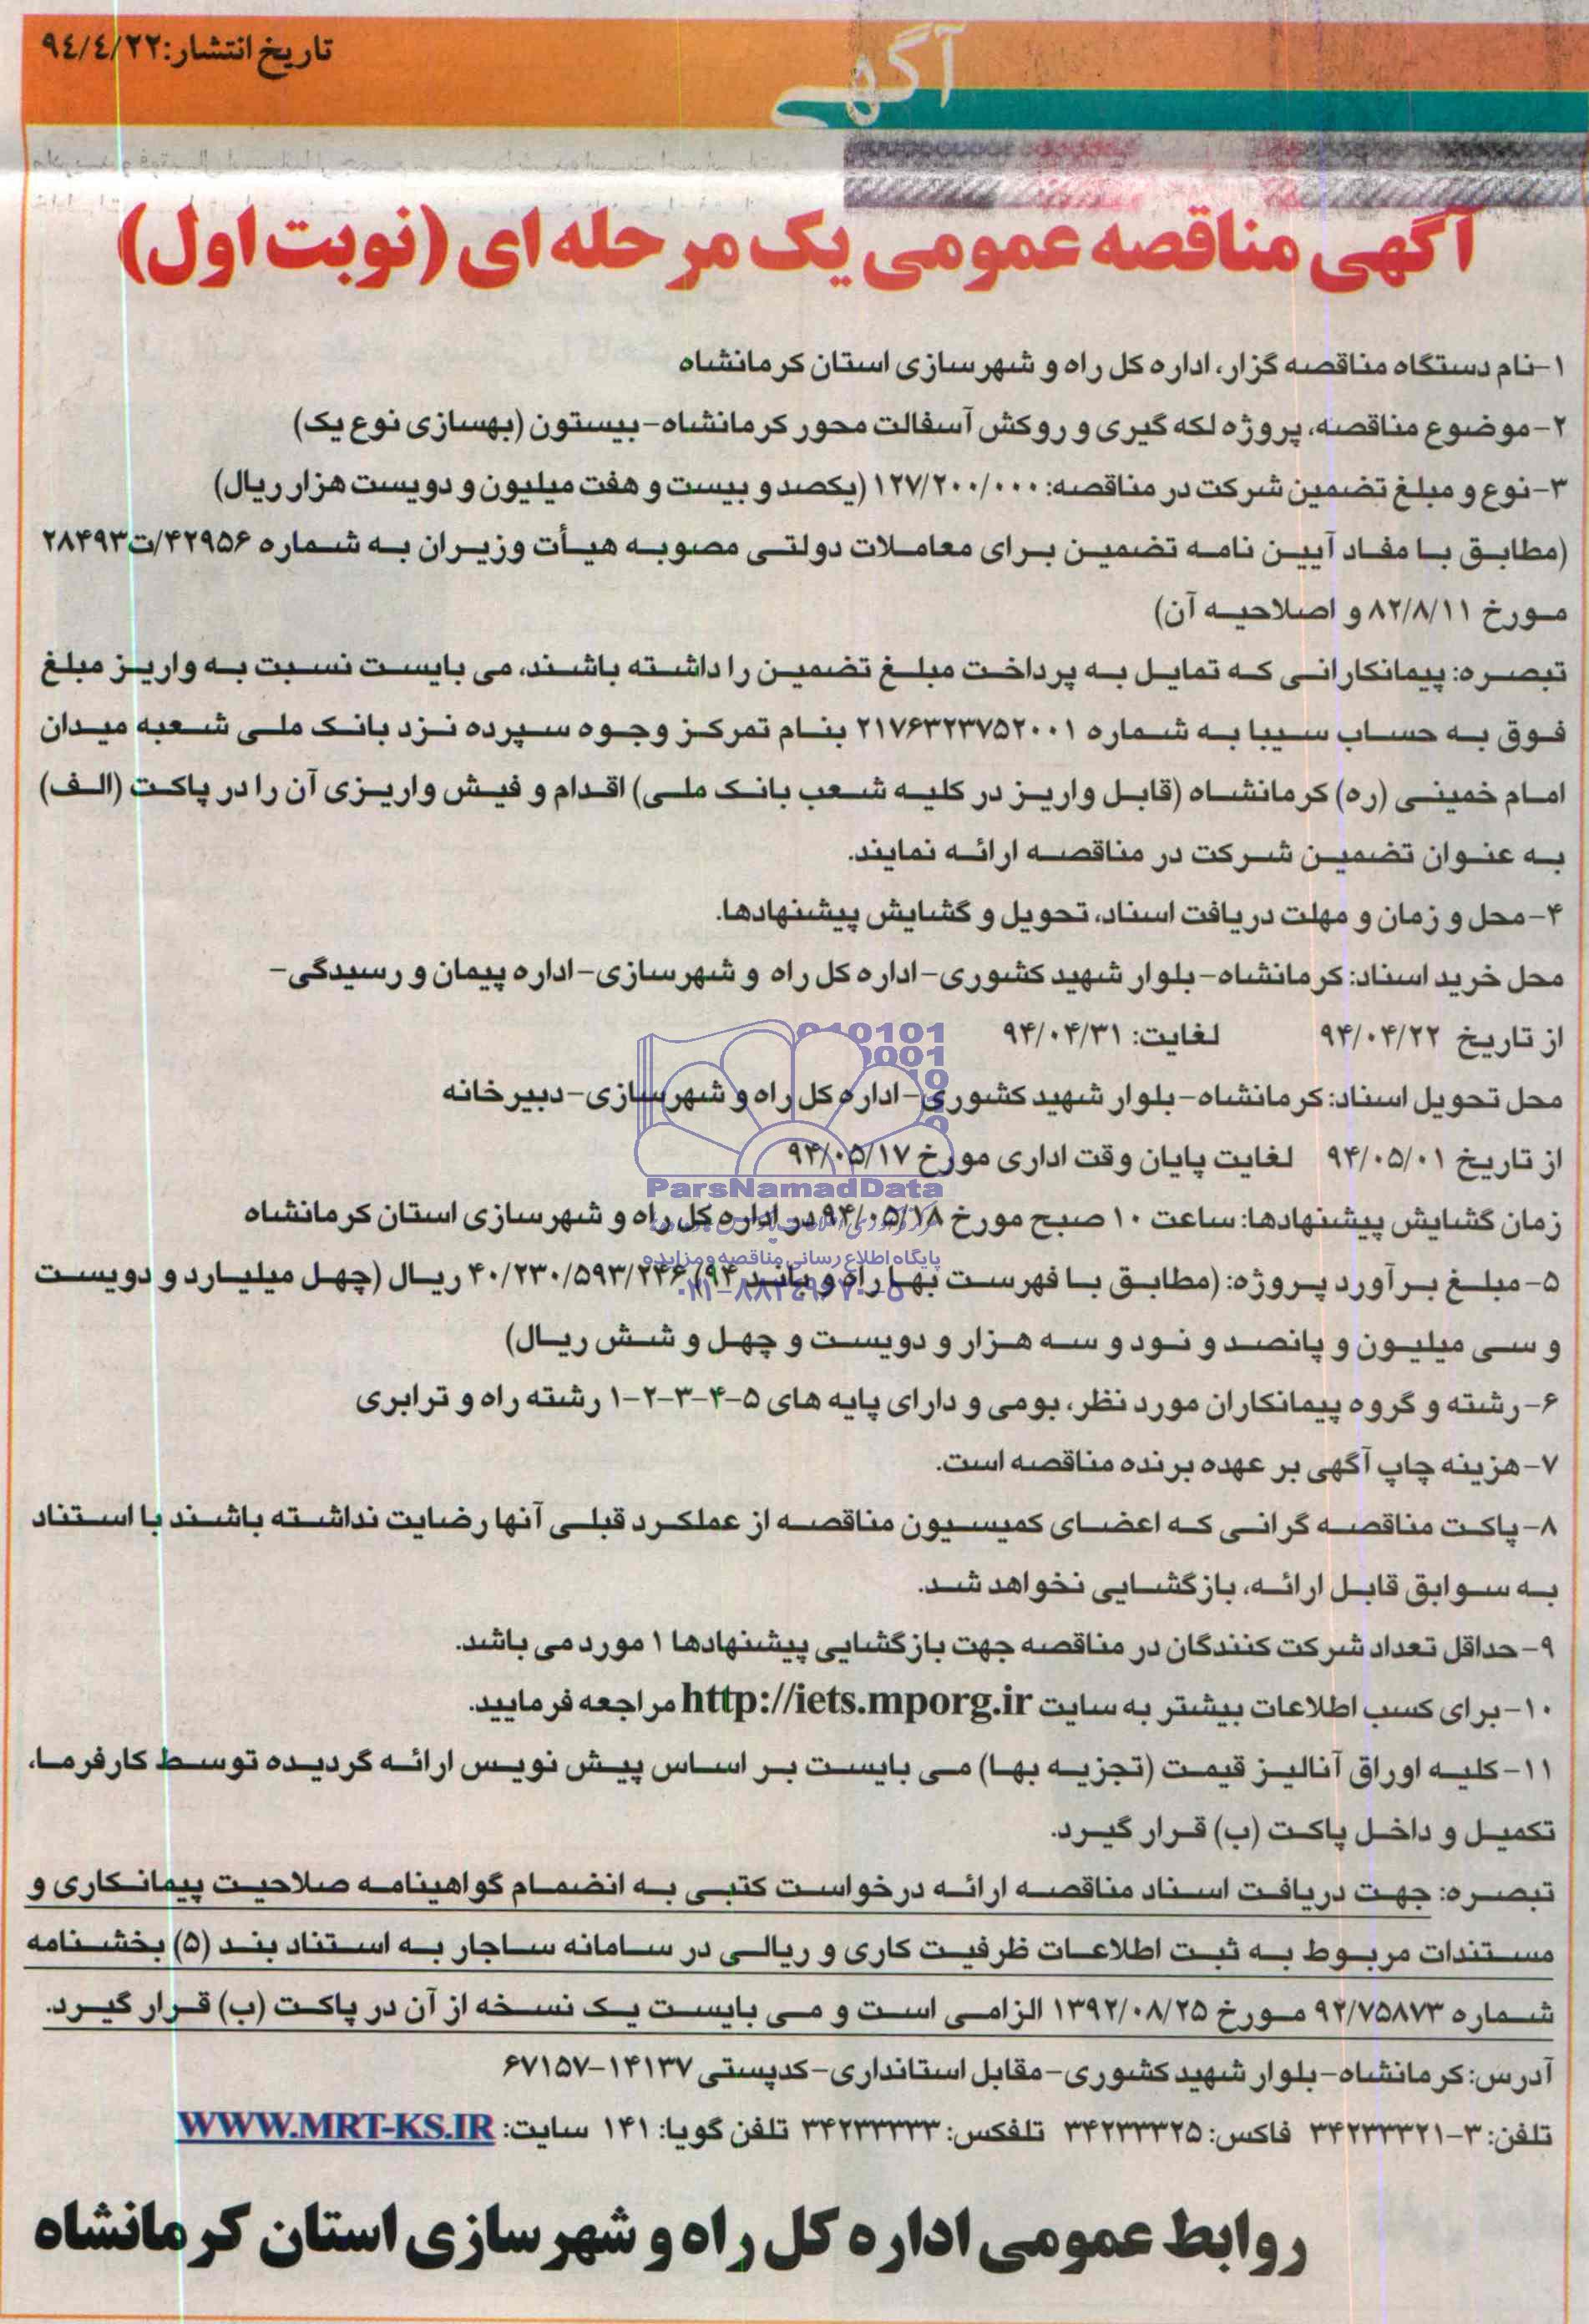 تاریخ انتشار: ۹۴/۴/۲۲
آگهی
آگهی مناقصه عمومی یک مرحله ای (نوبت اول)
۱-نام دستگاه مناقصه گزار، اداره کل راه و شهرسازی استان کرمانشاه
۲-موضوع مناقصه، پروژه لکه گیری و روکش آسفالت محور کرمانشاه-بیستون (بهسازی نوع یک)
۳-نوع و مبلغ تضمین شرکت در مناقصه: ۱۲۷/۲۰۰/۰۰۰ (یکصد و بیست و هفت میلیون و دویست هزار ریال)
(مطابق با مفاد آیین نامه تضمین برای معاملات دولتی مصوبه هیأت وزیران به شماره ۴۲۹۵۶/ت۲۸۴۹۳
مورخ ۸۲/۸/۱۱ و اصلاحیه آن)
تبصره: پیمانکارانی که تمایل به پرداخت مبلغ تضمین را داشته باشند، می بایست نسبت به واریز مبلغ
فوق به حساب سیبا به شماره ۲۱۷۶۳۲۳۷۵۲۰۰۱ بنام تمرکز وجوه سپرده نزد بانک ملی شعبه میدان
امام خمینی (ره) کرمانشاه (قابل واریز در کلیه شعب بانک ملی) اقدام و فیش واریزی آن را در پاکت (الف)
به عنوان تضمین شرکت در مناقصه ارائه نمایند.
۴-محل و زمان و مهلت دریافت اسناد، تحویل و گشایش پیشنهادها.
محل خرید اسناد: کرمانشاه-بلوار شهید کشوری-اداره کل راه و شهرسازی-اداره پیمان و رسیدگی-
از تاریخ ۹۴/۰۴/۲۲ لغایت: ۹۴/۰۴/۳۱
محل تحویل اسناد: کرمانشاه-بلوار شهید کشوری-اداره کل راه و شهرسازی-دبیرخانه
از تاریخ ۹۴/۰۵/۰۱ لغایت پایان وقت اداری مورخ ۹۴/۰۵/۱۷
ParsNamadData
زمان گشایش پیشنهادها: ساعت ۱۰ صبح مورخ ۹۴/۰۵/۱۸ در اداره کل راه و شهرسازی استان کرمانشاه
پایگاه اطلاع رسانی مناقصه و مزایده
۵-مبلغ برآورد پروژه: (مطابق با فهرست بها راه و باند ۹۴) ۴۰/۲۳۰/۵۹۳/۲۴۶ ریال (چهل میلیارد و دویست
و سی میلیون و پانصد و نود و سه هزار و دویست و چهل و شش ریال)
۶-رشته و گروه پیمانکاران مورد نظر، بومی و دارای پایه های ۵-۴-۳-۲-۱ رشته راه و ترابری
۷-هزینه چاپ آگهی بر عهده برنده مناقصه است.
۸-پاکت مناقصه گرانی که اعضای کمیسیون مناقصه از عملکرد قبلی آنها رضایت نداشته باشند با استناد
به سوابق قابل ارائه، بازگشایی نخواهد شد.
۹-حداقل تعداد شرکت کنندگان در مناقصه جهت بازگشایی پیشنهادها ۱ مورد می باشد.
۱۰-برای کسب اطلاعات بیشتر به سایت http://iets.mporg.ir مراجعه فرمایید.
۱۱-کلیه اوراق آنالیز قیمت (تجزیه بها) می بایست بر اساس پیش نویس ارائه گردیده توسط کارفرما،
تکمیل و داخل پاکت (ب) قرار گیرد.
تبصره: جهت دریافت اسناد مناقصه ارائه درخواست کتبی به انضمام گواهینامه صلاحیت پیمانکاری و
مستندات مربوط به ثبت اطلاعات ظرفیت کاری و ریالی در سامانه ساجار به استناد بند (۵) بخشنامه
شماره ۹۲/۷۵۸۷۳ مورخ ۱۳۹۲/۰۸/۲۵ الزامی است و می بایست یک نسخه از آن در پاکت (ب) قرار گیرد.
آدرس: کرمانشاه-بلوار شهید کشوری-مقابل استانداری-کدپستی ۱۴۱۳۷-۶۷۱۵۷
تلفن: ۳-۳۴۲۳۳۳۲۱ فاکس: ۳۴۲۳۳۳۲۵ تلفکس: ۳۴۲۳۳۳۳۳ تلفن گویا: ۱۴۱ سایت: WWW.MRT-KS.IR
روابط عمومی اداره کل راه و شهرسازی استان کرمانشاه